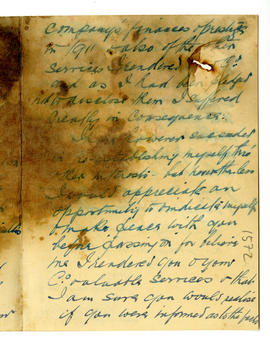 Company's finances & prestige
in 1911 also of the
services I rendered
and as I had
not to disclose them I suffered
Greatly in Consequence.
I have however succeeded
in re-establishing myself thro'
other interests - but nonetheless
I would appreciate an
opportunity to vindicate myself
& make peace with you
before passing on for believe
me I rendered you & your
Co valuable services & that
I am sure you would realise
if you were informed as to the facts
1572